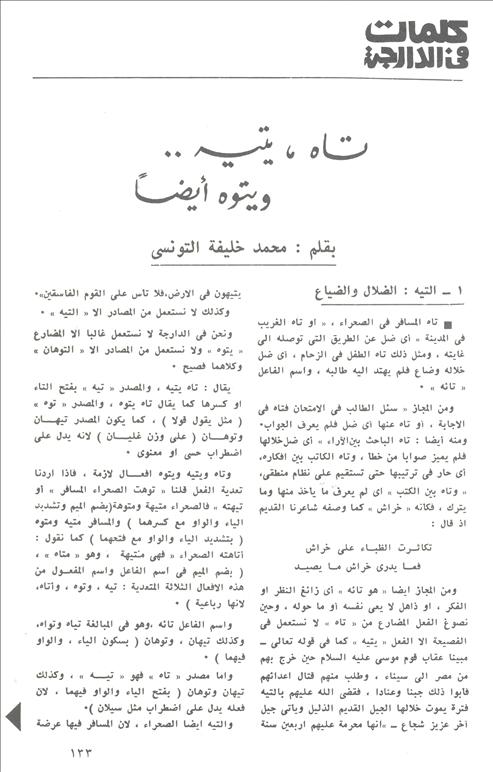 كلمات
في الدارجة
تاه ، يتيه ..
ويتوه أيضاً
بقلم : محمد خليفة التونسى
١ ـ التيه : الضلال والضياع
■ تاه المسافر فى الصحراء ، « او تاه الغريب
فى المدينة » أى ضل عن الطريق التى توصله الى
غايته ، ومثل ذلك تاه الطفل فى الزحام ، أى ضل
خلاله وضاع فلم يهتد اليه طالبه ، واسم الفاعل
« تائه » ٠
ومن المجاز « سئل الطالب فى الامتحان فتاه فى
الاجابة ، أو تاه عنها أى ضل فلم يعرف الجواب٠
ومنه أيضا : تاه الباحث بين‌الآراء » أى ضل‌خلالها
فلم يميز صوابا من خطا ، وتاه الكاتب بين افكاره،
أى حار فى ترتيبها حتى تستقيم على نظام منطقى،
« وتاه بين الكتب » اى لم يعرف ما يأخذ منها وما
يترك ، فكأنه « خراش » كما وصفه شاعرنا القديم
اذ قال :
تكاثرت الظباء على خراش
فما يدرى خراش ما يصيد
ومن المجاز ايضا « هو تائه » أى زائغ النظر او
الفكر ، او ذاهل لا يعى نفسه أو ما حوله ، وحين
نصوغ الفعل المضارع من « تاه » لا نستعمل فى
الفصيحة الا الفعل « يتيه » كما فى قوله تعالى ـ
مبينا عقاب قوم موسى عليه السلام حين خرج بهم
من مصر الى سيناء ، وطلب منهم قتال اعدائهم
فأبوا ذلك جبنا وعنادا ، فقضى الله عليهم بالتيه
فترة يموت خلالها الجيل القديم الذليل ويأتى جيل
آخر عزيز شجاع ـ «انها محرمة عليهم اربعين سنة
يتيهون فى الارض،فلا تأس على القوم الفاسقين»٠
وكذلك لا نستعمل من المصادر الا « التيه » ٠
ونحن فى الدارجة لا نستعمل غالبا الا المضارع
« يتوه » ولا نستعمل من المصادر الا « التوهان »
وكلاهما فصيح ٠
يقال : تاه يتيه ، والمصدر « تيه » بفتح التاء
او كسرها كما يقال تاه يتوه ، والمصدر « توه »
( مثل يقول قولا ) ، كما يكون المصدر تيهــان
وتوهــان ( على وزن غليــان ) لانه يدل على
اضطراب حسى او معنوى ٠
وتاه ويتيه ويتوه افعــال لازمة ، فاذا اردنا
تعدية الفعل قلنا « توهت الصحراء المسافر » أو
تيهته » فالصحراء متيهة ومتوهة(بضم الميم وتشديد
الياء والواو مع كسرهما ) والمسافر متيه ومتوه
( بتشديد الياء والواو مع فتحهما ) كما نقول :
أتاهته الصحراء «فهى متيهة ، وهو « متاه » ،
( بضم الميم فى اسم الفاعل واسم المفعــول من
هذه الافعال الثلاثة المتعدية : تيه ، وتوه ، وأتاه،
لانها رباعية ) ٠
واسم الفاعل تائه ،وهو فى المبالغة تياه وتواه،
وكذلك تيهان ، وتوهان ( بسكون الياء ، والواو
فيهما ) ٠
واما مصدر « تاه » فهو « تيــه » ، وكذلك
تيهان وتوهان ( بفتح الياء والواو فيهما ، لان
فعله يدل على اضطراب مثل سيلان ) ٠
والتيه ايضا الصحراء ، لان المسافر فيها عرضة
١٣٣